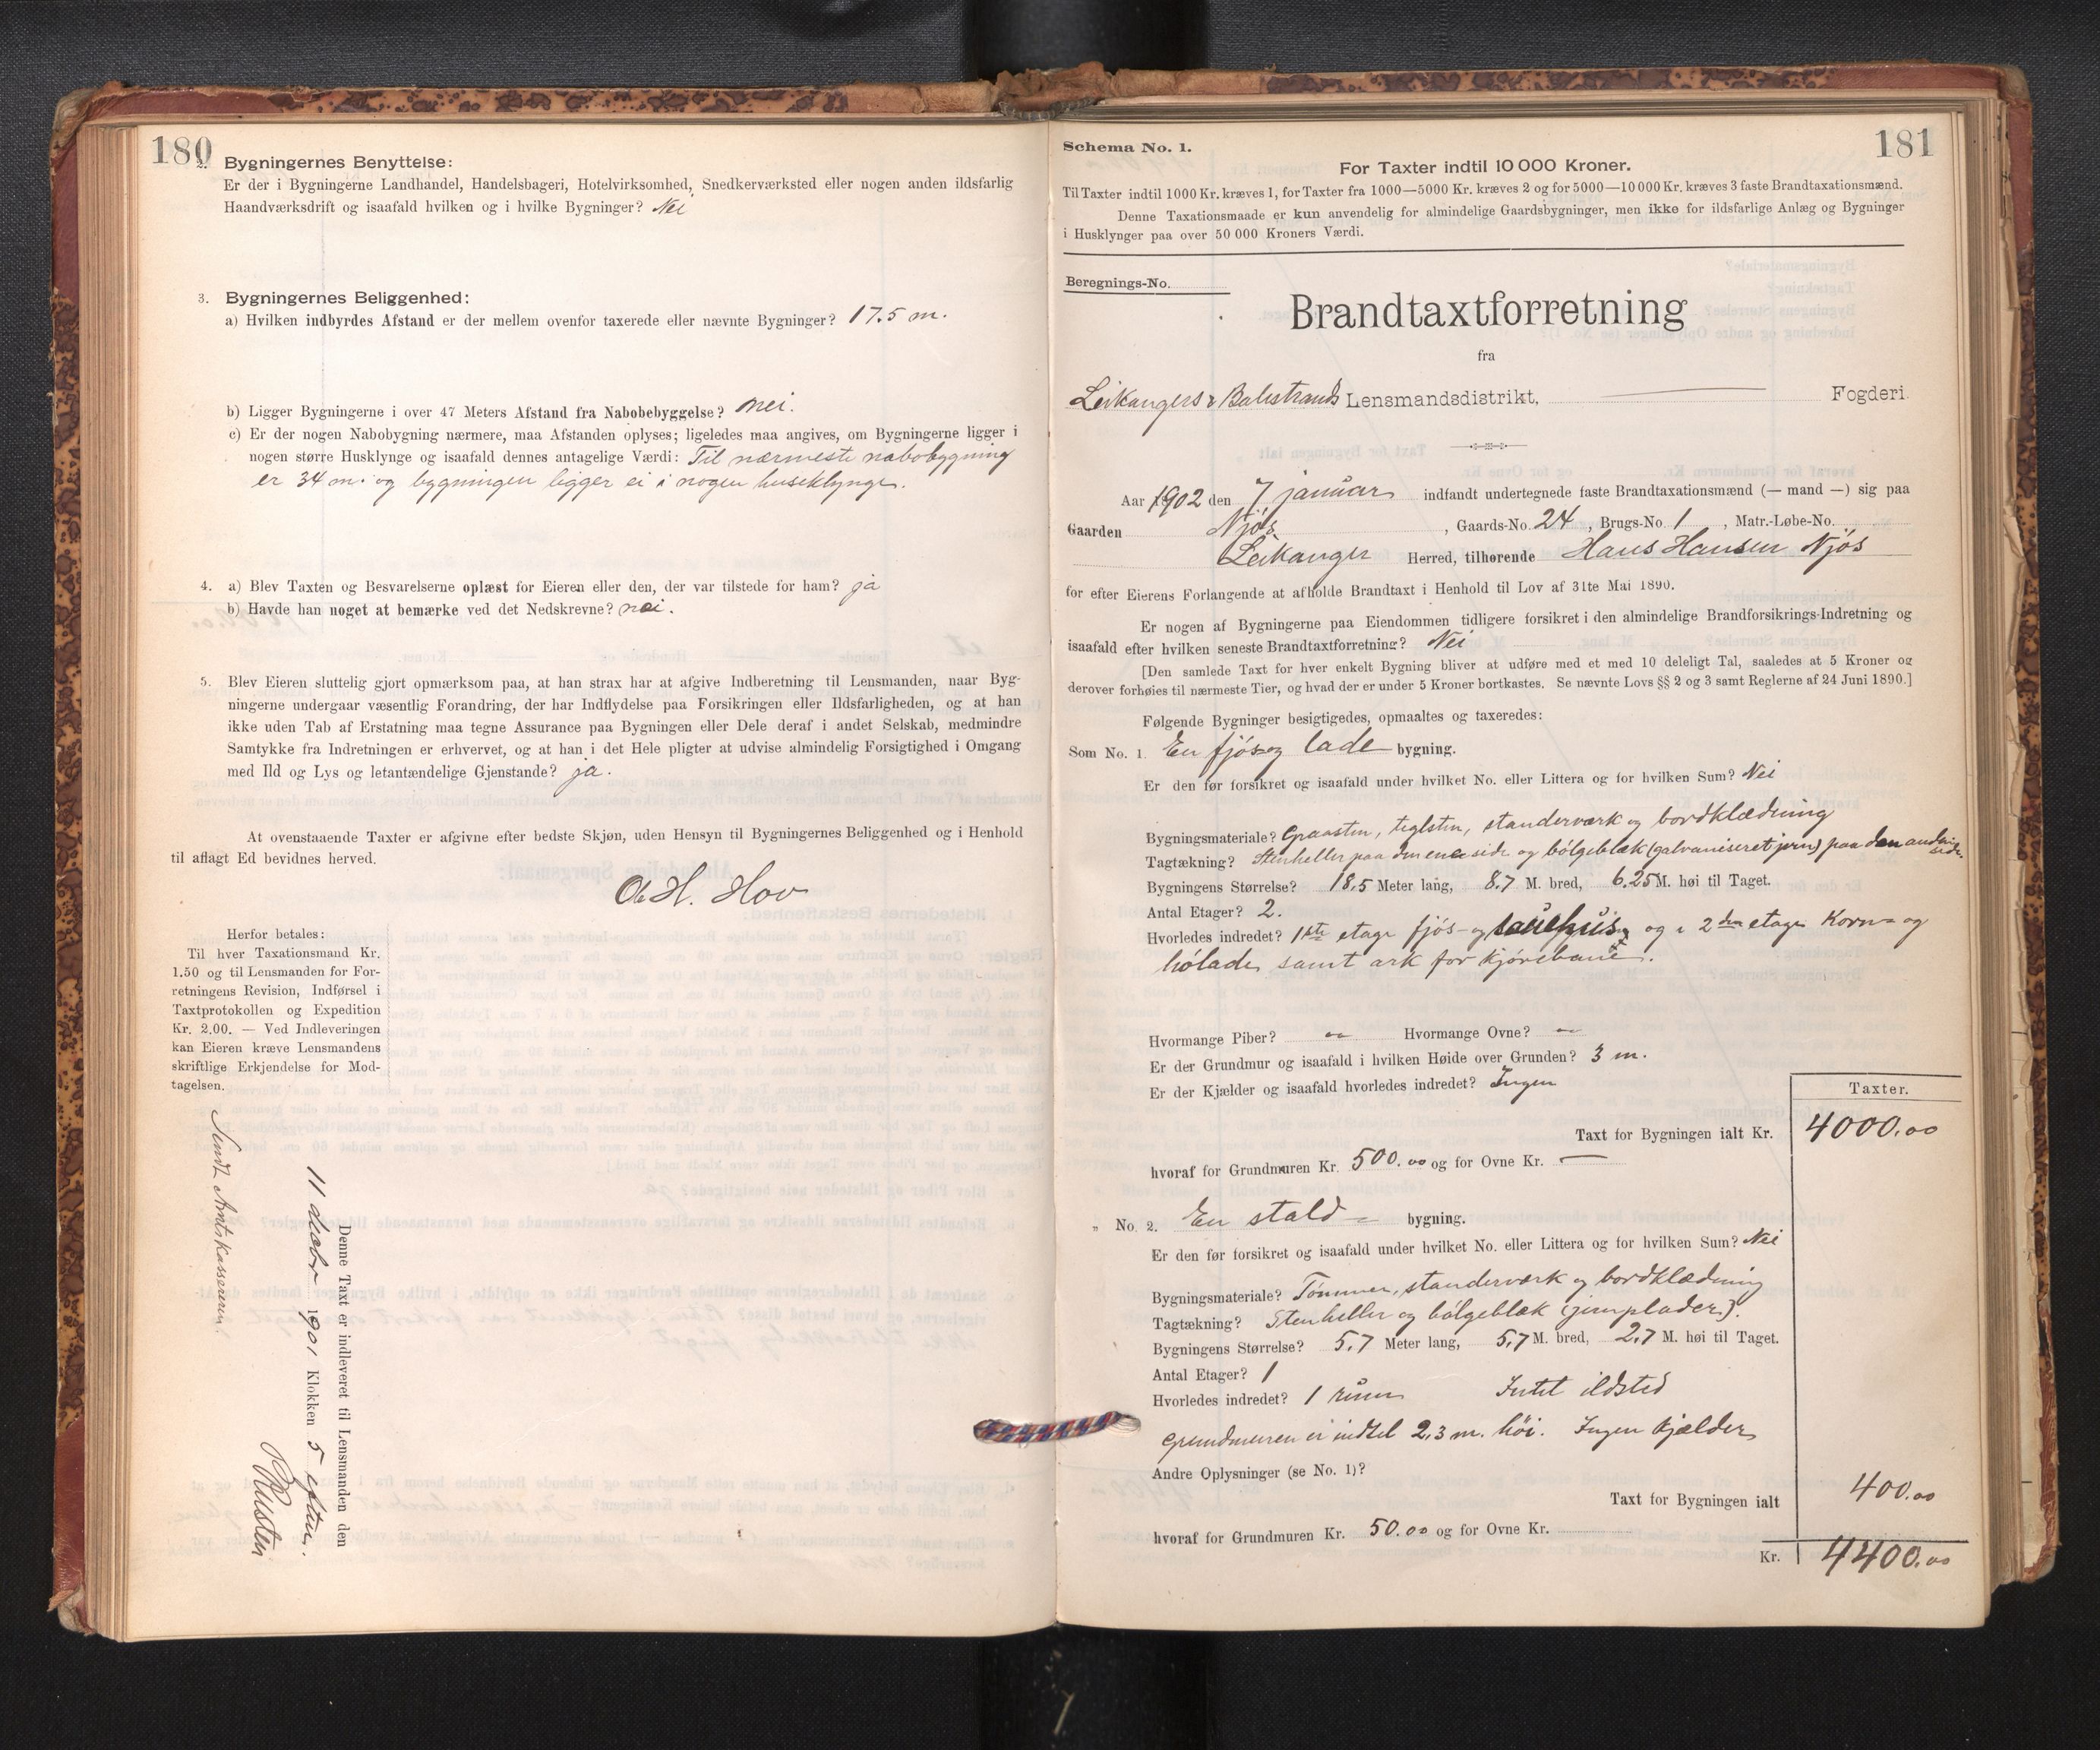 180
2. Bygningernes Benyttelse:
Er der i Bygningerne Landhandel, Handelsbageri, Hotelvirksomhed, Snedkerværksted eller nogen anden ildsfarlig
Haandværksdrift og isaafald hvilken og i hvilke Bygninger? Nei
3. Bygningernes Beliggenhed:
a) Hvilken indbyrdes Afstand er der mellem ovenfor taxerede eller nævnte Bygninger? 17.5 m.
b) Ligger Bygningerne i over 47 Meters Afstand fra Nabobebyggelse? nei.
c) Er der nogen Nabobygning nærmere, maa Afstanden oplyses; ligeledes maa angives, om Bygningerne ligger i
nogen større Husklynge og isaafald dennes antagelige Værdi: Til nærmeste nabobygning
er 34 m. og bygningen ligger ei i nogen huseklynge.
4. a) Blev Taxten og Besvarelserne oplæst for Eieren eller den, der var tilstede for ham? ja
b) Havde han noget at bemærke ved det Nedskrevne? nei.
5. Blev Eieren sluttelig gjort opmærksom paa, at han strax har at afgive Indberetning til Lensmanden, naar Byg-
ningerne undergaar væsentlig Forandring, der har Indflydelse paa Forsikringen eller Ildsfarligheden, og at han
ikke uden Tab af Erstatning maa tegne Assurance paa Bygningen eller Dele deraf i andet Selskab, medmindre
Samtykke fra Indretningen er erhvervet, og at han i det Hele pligter at udvise almindelig Forsigtighed i Omgang
med Ild og Lys og letantændelige Gjenstande? ja.
At ovenstaaende Taxter er afgivne efter bedste Skjøn, uden Hensyn til Bygningernes Beliggenhed og i Henhold
til aflagt Ed bevidnes herved.
O. H. Hov
Herfor betales:
Til hver Taxationsmand Kr.
1.50 og til Lensmanden for For-
retningens Revision, Indførsel i
Taxtprotokollen og Expedition
Kr. 2,00. — Ved Indleveringen
kan Eieren kræve Lensmandens
skriftlige Erkjendelse for Mod-
tagelsen.
Denne Taxt er indleveret til Lensmanden den
11 decbr 1901 Klokken 5 eftm.
Rusten
Sendt Amtskassereren.
181
Schema No. 1.
For Taxter indtil 10 000 Kroner.
Til Taxter indtil 1000 Kr. kræves 1, for Taxter fra 1000—5000 Kr. kræves 2 og for 5000—10 000 Kr. kræves 3 faste Brandtaxationsmænd.
Denne Taxationsmaade er kun anvendelig for almindelige Gaardsbygninger, men ikke for ildsfarlige Anlæg og Bygninger
i Husklynger paa over 50 000 Kroners Værdi.
Beregnings-No.
Brandtaxtforretning
fra
Leikangers & Balestrands Lensmandsdistrikt, Fogderi.
Aar 1902 den 7 januar indfandt undertegnede faste Brandtaxationsmænd (— mand —) sig paa
Gaarden Njøs, Gaards-No. 24, Brugs-No. 1, Matr.-Løbe-No.
Leikanger Herred, tilhørende Hans Hansen Njøs
for efter Eierens Forlangende at afholde Brandtaxt i Henhold til Lov af 31te Mai 1890.
Er nogen af Bygningerne paa Eiendommen tidligere forsikret i den almindelige Brandforsikrings-Indretning og
isaafald efter hvilken seneste Brandtaxtforretning? Nei
[Den samlede Taxt for hver enkelt Bygning bliver at udføre med et med 10 deleligt Tal, saaledes at 5 Kroner og
derover forhøies til nærmeste Tier, og hvad der er under 5 Kroner bortkastes. Se nævnte Lovs §§ 2 og 3 samt Reglerne af 24 Juni 1890.]
Følgende Bygninger besigtigedes, opmaaltes og taxeredes:
Som No. 1. En fjøs og lade bygning.
Er den før forsikret og isaafald under hvilket No. eller Littera og for hvilken Sum? Nei
Bygningsmateriale? Graasten, teglsten, standerværk og bordklædning
Tagtækning? Stenheller paa den ene side og bølgeblæk (galvaniseret jern) paa den anden side.
Bygningens Størrelse? 18.5 Meter lang, 8.7 M. bred, 6.25 M. høi til Taget.
Antal Etager? 2.
Hvorledes indredet? 1ste etage fjøs- og sauehus, og i 2den etage Korn- og
hølade, samt ark for kjørebane.
Hvormange Piber? Hvormange Ovne?
Er der Grundmur og isaafald i hvilken Høide over Grunden? 3 m.
Er der Kjælder og isaafald hvorledes indredet? Ingen
Taxter.
Taxt for Bygningen ialt Kr. 4000.00
hvoraf for Grundmuren Kr. 500.00 og for Ovne Kr. —
„ No. 2. En stald bygning.
Er den før forsikret og isaafald under hvilket No. eller Littera og for hvilken Sum? Nei
Bygningsmateriale? Tømmer, standerværk og bordklædning
Tagtækning? Stenheller og bølgeblæk (jernplader).
Bygningens Størrelse? 5,7 Meter lang, 5,7 M. bred, 2,7 M. høi til Taget.
Antal Etager? 1
Hvorledes indredet? 1 rum Intet ildsted
Grundmuren er indtil 2,3 m. høi. Ingen Kjælder
Andre Oplysninger (se No. 1)?
Taxt for Bygningen ialt 400.00
hvoraf for Grundmuren Kr. 50.00 og for Ovne Kr.
Kr. 4400.00